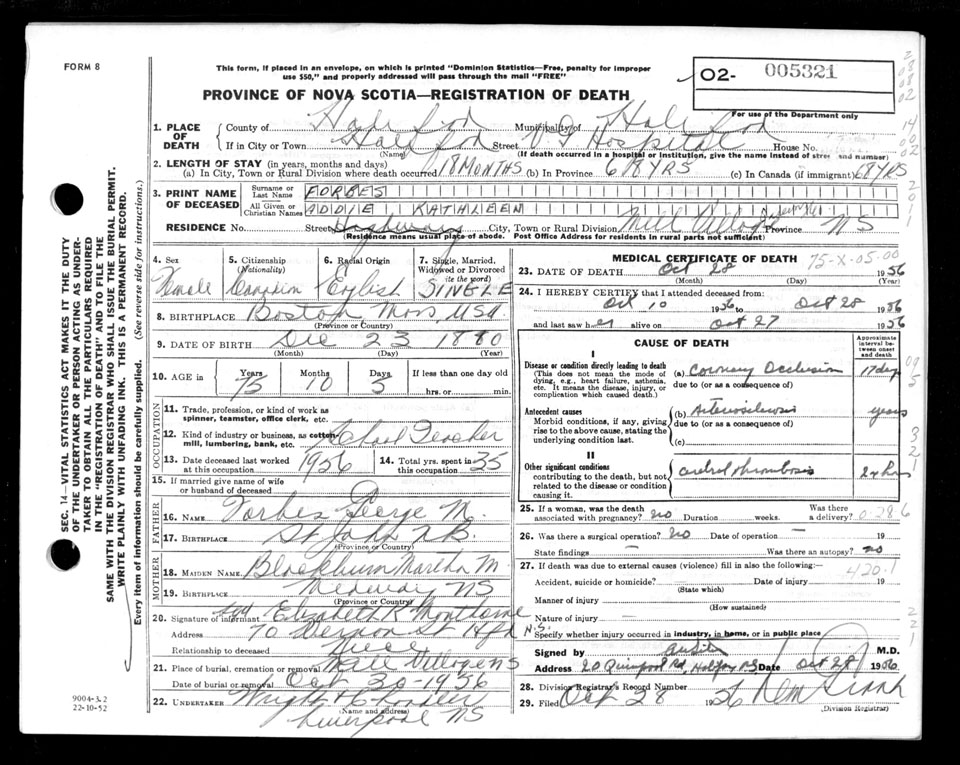 FORM 8
This form, if placed in an envelope, on which is printed "Dominion Statistics—Free, penalty for improper
use $50," and properly addressed will pass through the mail "FREE"
PROVINCE OF NOVA SCOTIA—REGISTRATION OF DEATH
O2- 005321
For use of the Department only
1. PLACE OF DEATH
County of Halifax Municipality Halifax
If in City or Town Halifax Street V G Hospital House No.
(Name) (If death occurred in a hospital or institution, give the name instead of street and number)
2. LENGTH OF STAY (in years, months and days)
(a) In City, Town or Rural Division where death occurred 18 MONTHS (b) In Province 68 YRS (c) In Canada (if immigrant) 68 YRS
3. PRINT NAME OF DECEASED
Surname or Last Name FORBES
All Given or Christian Names ADDIE KATHLEEN
RESIDENCE No. Street Highway City, Town or Rural Division Mill Village Province NS
(Residence means usual place of abode. Post Office Address for residents in rural parts not sufficient)
4. Sex Female
5. Citizenship (Nationality) Canadian
6. Racial Origin English
7. Single, Married, Widowed or Divorced (write the word) SINGLE
8. BIRTHPLACE Boston Mass, USA
(Province or Country)
9. DATE OF BIRTH Dec 23 1880
(Month) (Day) (Year)
10. AGE in Years 75 Months 10 Days 5 If less than one day
hrs. or min.
OCCUPATION
11. Trade, profession, or kind of work as spinner, teamster, office clerk, etc.
12. Kind of industry or business, as cotton mill, lumbering, bank, etc. School Teacher
13. Date deceased last worked at this occupation 1956
14. Total yrs. spent in this occupation 35
15. If married give name of wife or husband of deceased
FATHER
16. NAME Forbes George N.
17. BIRTHPLACE St John N.B.
(Province or Country)
MOTHER
18. MAIDEN NAME Blackburn Martha M
19. BIRTHPLACE Medway NS
(Province or Country)
20. Signature of informant Elizabeth K
Address 70 Vernon St Hfx N.S.
Relationship to deceased Niece
21. Place of burial, cremation or removal Mill Village NS
Date of burial or removal Oct 30 - 1956
22. UNDERTAKER Wright
(Name and address)
Liverpool NS
MEDICAL CERTIFICATE OF DEATH
75-X-05-00
23. DATE OF DEATH Oct 28 1956
(Month) (Day) (Year)
24. I HEREBY CERTIFY that I attended deceased from:
Oct 10 1956 to Oct 28 1956
and last saw her alive on Oct 27 1956
CAUSE OF DEATH
Approximate interval between onset and death
I
Disease or condition directly leading to death
(This does not mean the mode of dying, e.g., heart failure, asthenia, etc. It means the disease, injury, or complication which caused death.)
(a) Coronary Occlusion 17 days
due to (or as a consequence of)
Antecedent causes
Morbid conditions, if any, giving rise to the above cause, stating the underlying condition last.
(b) Arteriosclerosis years
due to (or as a consequence of)
(c)
II
Other significant conditions
contributing to the death, but not related to the disease or condition causing it.
cerebral thrombosis 24 hrs
25. If a woman, was the death associated with pregnancy? no Duration weeks. Was there a delivery?
26. Was there a surgical operation? no Date of operation — 19
State findings — Was there an autopsy? no
27. If death was due to external causes (violence) fill in also the following:—
420.1
Accident, suicide or homicide? Date of injury 19
(State which)
Manner of injury
(How sustained)
Nature of injury
Specify whether injury occurred in industry, in home, or in public place
Signed by M.D.
Address 20 Quinpool Rd, Halifax NS Date Oct 28 1956
28. Division Registrar's Record Number
29. Filed Oct 28 1956
(Division Registrar)
SEC. 14—VITAL STATISTICS ACT MAKES IT THE DUTY
OF THE UNDERTAKER OR PERSON ACTING AS UNDER-
TAKER TO OBTAIN ALL THE PARTICULARS REQUIRED
IN THE "REGISTRATION OF DEATH" AND TO FILE THE
SAME WITH THE DIVISION REGISTRAR WHO SHALL ISSUE THE BURIAL PERMIT.
WRITE PLAINLY WITH UNFADING INK. THIS IS A PERMANENT RECORD.
Every item of information should be carefully supplied. (See reverse side for instructions.)
9004-3.2
22-10-52